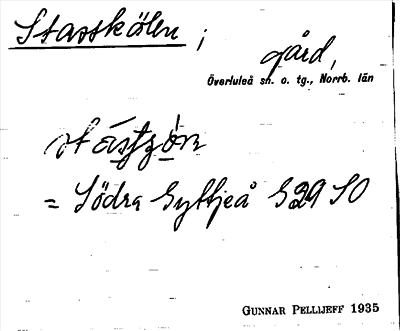 Stasskölen ; gård,
Överluleå sn. o. tg., Norrb. län
= Södra Gyttjeå S29 SO
GUNNAR PELLIJEFF 1935